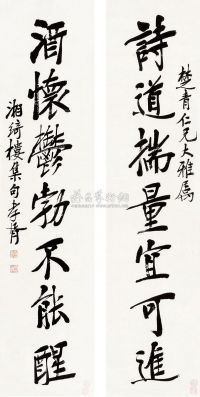 詩道揣量宜可進
楚青仁兄大雅屬
酒懷鬱勃不能醒
湘綺樓集句孝胥